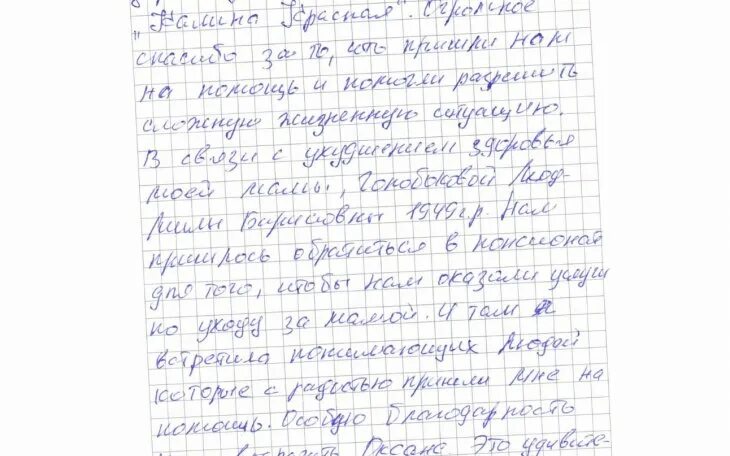 "Калина Красная". Огромное
спасибо за то, что пришли нам
на помощь и помогли разрешить
сложную жизненную ситуацию.
В связи с ухудшением здоровья
моей мамы, Гонобыковой Люд-
милы Борисовны 1949г.р. Нам
пришлось обратиться в пансионат
для того, чтобы нам оказали услуги
по уходу за мамой. И там я
встретила понимающих людей
которые с радостью пришли мне на
помощь. Особую благодарность
Оксане. Это удивите-